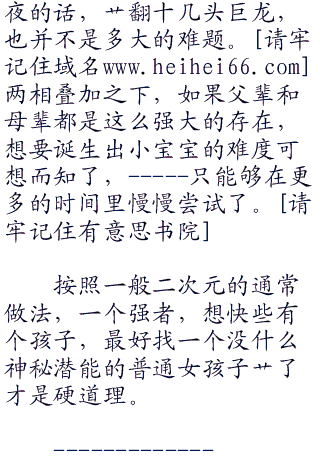 夜的话，艹翻十几头巨龙，
也并不是多大的难题。[请牢
记住域名www.heihei66.com]
两相叠加之下，如果父辈和
母辈都是这么强大的存在，
想要诞生出小宝宝的难度可
想而知了，-----只能够在更
多的时间里慢慢尝试了。[请
牢记住有意思书院]
按照一般二次元的通常
做法，一个强者，想快些有
个孩子，最好找一个没什么
神秘潜能的普通女孩子艹了
才是硬道理。
-------------